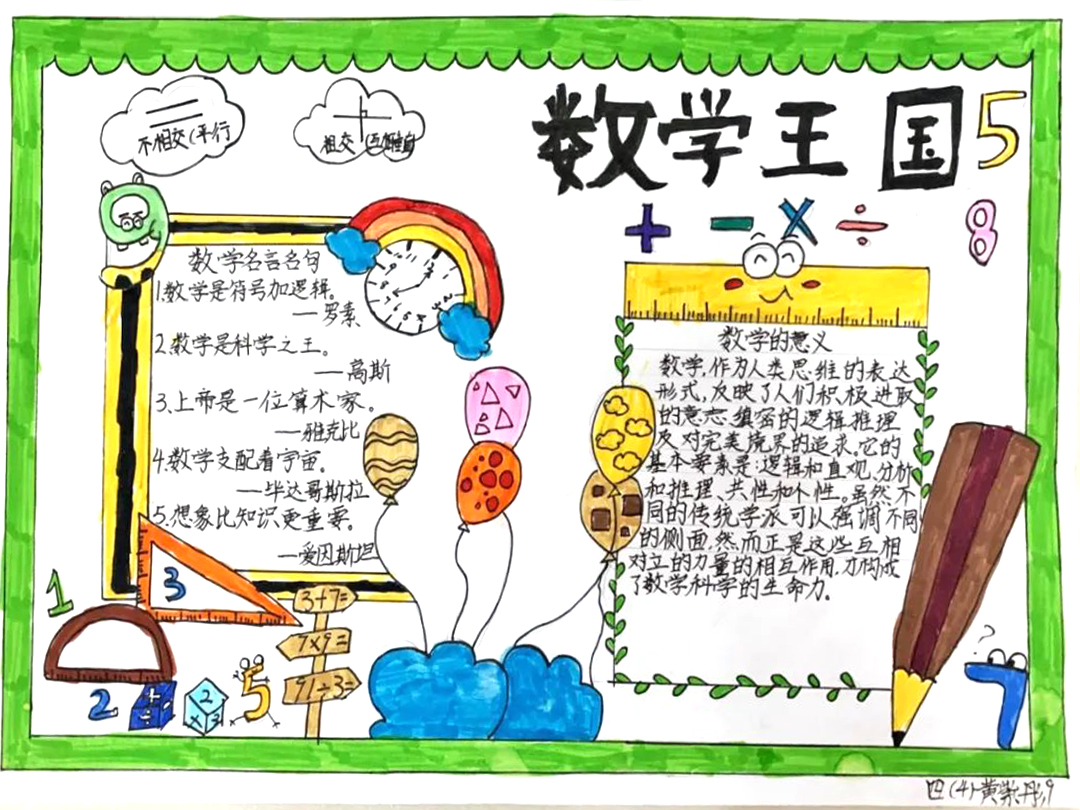 数学王国
5
+ - × ÷
8
不相交(平行
相交
数学名言名句
1.数学是符号加逻辑。
—罗素
2.数学是科学之王。
—高斯
3.上帝是一位算术家。
—雅克比
4.数学支配着宇宙。
—毕达哥斯拉
5.想象比知识更重要。
—爱因斯坦
数学的意义
数学,作为人类思维的表达
形式,反映了人们积极进取
的意态、缜密的逻辑推理
及对完美境界的追求。它的
基本要素是:逻辑和直观、分析
和推理、共性和个性。虽然不
同的传统学派可以强调不同
的侧面,然而正是这些互相
对立的力量的相互作用,才构成
了数学科学的生命力。
1
3
3+7=
7×9=
2
5
?
7
四(4)黄